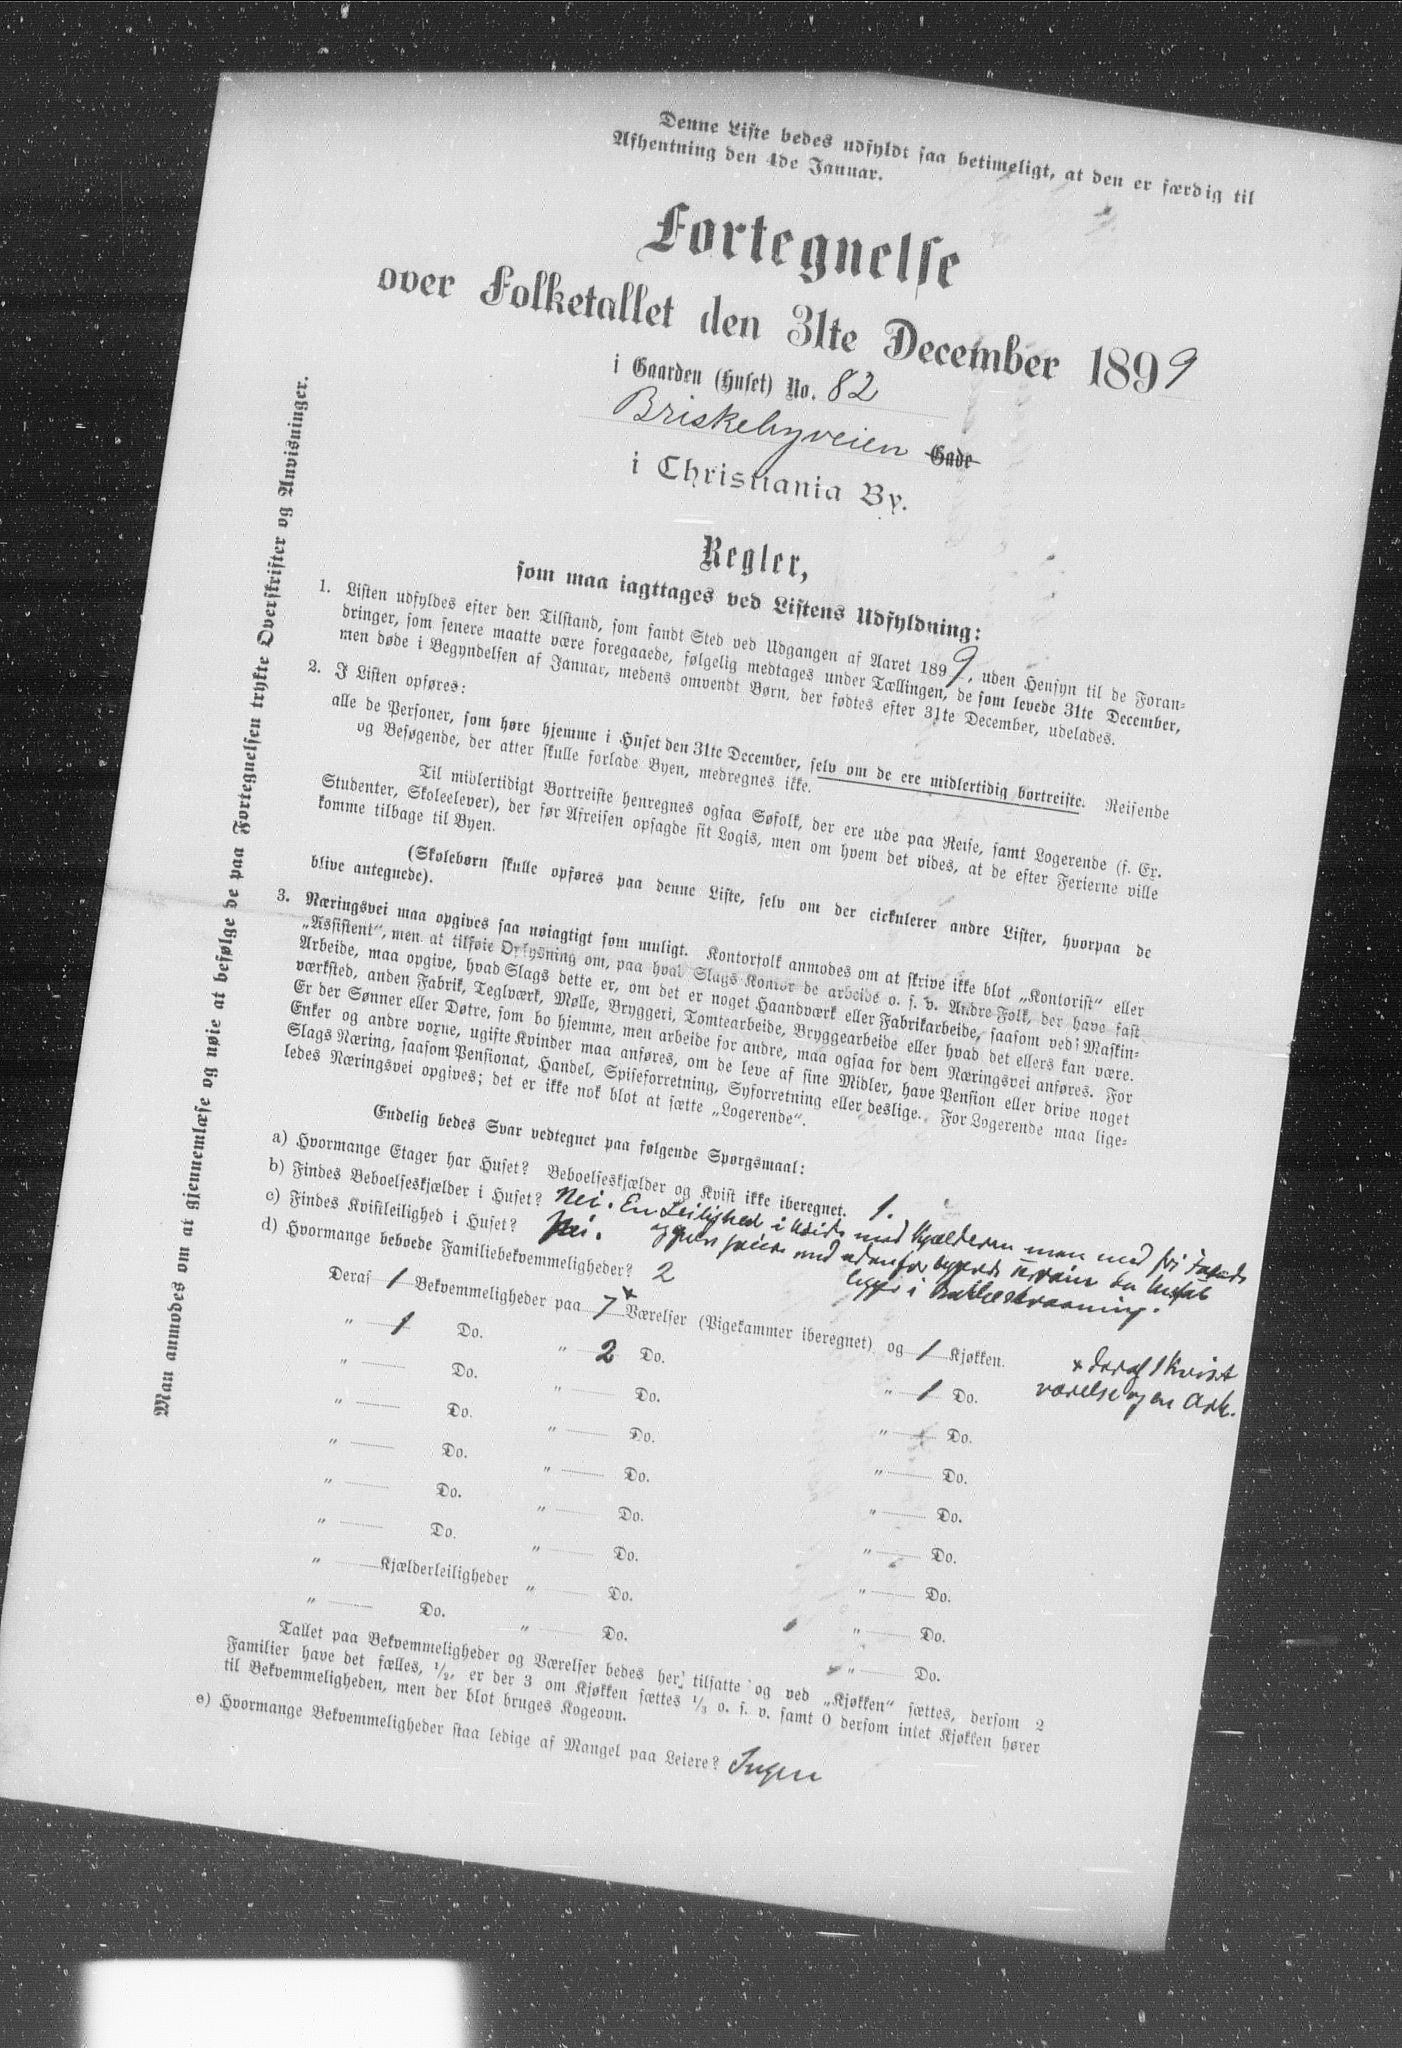 Denne Liste bedes udfyldt saa betimeligt, at den er færdig til
Afhentning den 4de Januar.
Fortegnelse
over Folketallet den 31te December 1899
i Gaarden (Huset) No. 82
Briskebyveien Gade
i Christiania By.
Regler,
som maa iagttages ved Listens Udfyldning:
1. Listen udfyldes efter den Tilstand, som fandt Sted ved Udgangen af Aaret 1899, uden Hensyn til de Foran-
dringer, som senere maatte være foregaaede, følgelig medtages under Tællingen, de som levede 31te December,
men døde i Begyndelsen af Januar, medens omvendt Børn, der fødtes efter 31te December, udelades.
2. I Listen opføres:
alle de Personer, som høre hjemme i Huset den 31te December, selv om de ere midlertidig bortreiste. Reisende
og Besøgende, der atter skulle forlade Byen, medregnes ikke.
Til midlertidigt Bortreiste henregnes ogsaa Søfolk, der ere ude paa Reise, samt Logerende (f. Ex.
Studenter, Skoleelever), der før Afreisen opsagde sit Logis, men om hvem det vides, at de efter Ferierne ville
komme tilbage til Byen.
(Skolebørn skulle opføres paa denne Liste, selv om der cirkulerer andre Lister, hvorpaa de
blive antegnede).
3. Næringsvei maa opgives saa nøiagtigt som muligt. Kontorfolk anmodes om at skrive ikke blot „Kontorist“ eller
„Assistent“, men at tilføie Oplysning om, paa hvad Slags Kontor de arbeide o. s. v. Andre Folk, der have fast
Arbeide, maa opgive, hvad Slags dette er, om det er noget Haandværk eller Fabrikarbeide, saasom ved Maskin-
værksted, anden Fabrik, Teglværk, Mølle, Bryggeri, Tomtearbeide, Bryggearbeide eller hvad det ellers kan være.
Er der Sønner eller Døtre, som bo hjemme, men arbeide for andre, maa ogsaa for dem Næringsvei anføres. For
Enker og andre vorne, ugifte Kvinder maa anføres, om de leve af sine Midler, have Pension eller drive noget
Slags Næring, saasom Pensionat, Handel, Spiseforretning, Syforretning eller deslige. For Logerende maa lige-
ledes Næringsvei opgives; det er ikke nok blot at sætte „Logerende“.
Endelig bedes Svar vedtegnet paa følgende Spørgsmaal:
a) Hvormange Etager har Huset? Beboelseskjælder og Kvist ikke iberegnet. 1.
b) Findes Beboelseskjælder i Huset? Nei. En Leilighed i med Kjælderen men med fri
c) Findes Kvistleilighed i Huset? Nei.
ligger i
d) Hvormange beboede Familiebekvemmeligheder? 2
Deraf 1 Bekvemmeligheder paa 7 x Værelser (Pigekammer iberegnet) og 1 Kjøkken.
x deraf 1 Kvist
værelse og en Ark.
„ 1 Do. „ 2 Do. „ 1 Do.
„ Do. „ Do. „ Do.
„ Do. „ Do. „ Do.
„ Do. „ Do. „ Do.
„ Do. „ Do. „ Do.
„ Do. „ Do. „ Do.
„ Kjælderleiligheder „ Do. „ Do.
„ Do. „ Do. „ Do.
Tallet paa Bekvemmeligheder og Værelser bedes her tilsatte og ved „Kjøkken“ sættes, dersom 2
Familier have det fælles, 1/2, er der 3 om Kjøkken sættes 1/3 o. s. v. samt 0 dersom intet Kjøkken hører
til Bekvemmeligheden, men der blot bruges Kogeovn.
e) Hvormange Bekvemmeligheder staa ledige af Mangel paa Leiere? Ingen
Man anmodes om at gjennemlæse og nøie at befølge de paa Fortegnelsen trykte Overskrifter og Anvisninger.